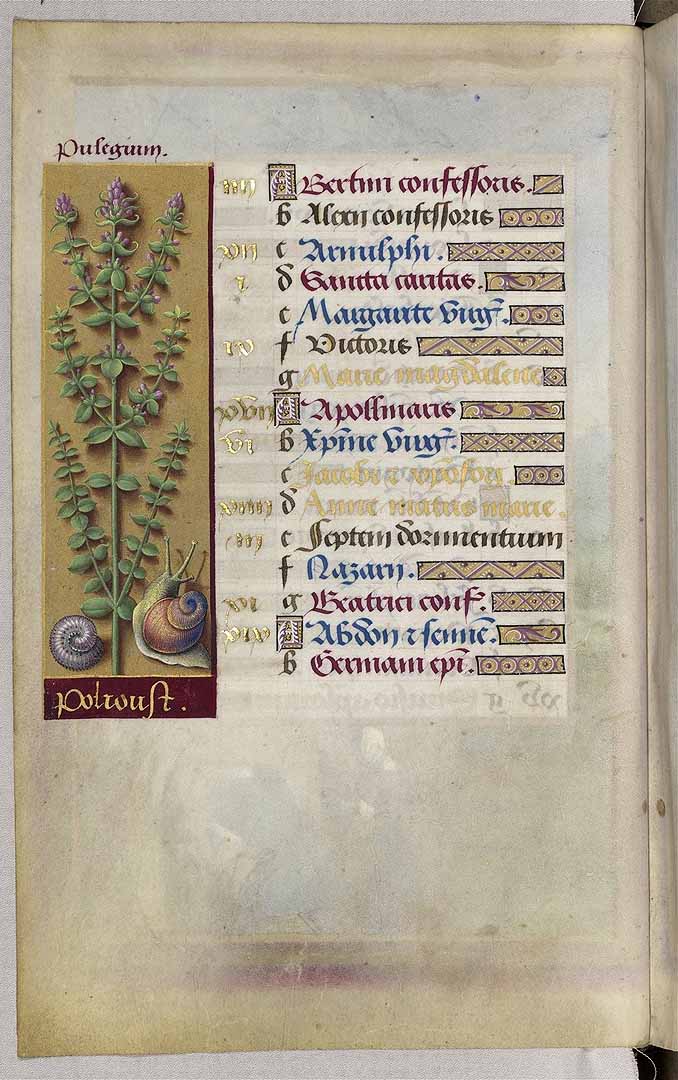 Pulegium.
iiii A Bertini confessoris.
b Alexii confessoris
xii c Arnulphi.
i d Sancta caritas.
e Margarite virg.
ix f Victoris
g Marie magdalene
xvii A Apollinaris
vi b Xpine virg.
c Jacobi
xiiii d Anne matris marie.
iii e Septem dormientium
f Nazarii.
xi g Beatrici conf.
xix A Abdon ⁊ sennē.
b Germani epi.
Polioust.